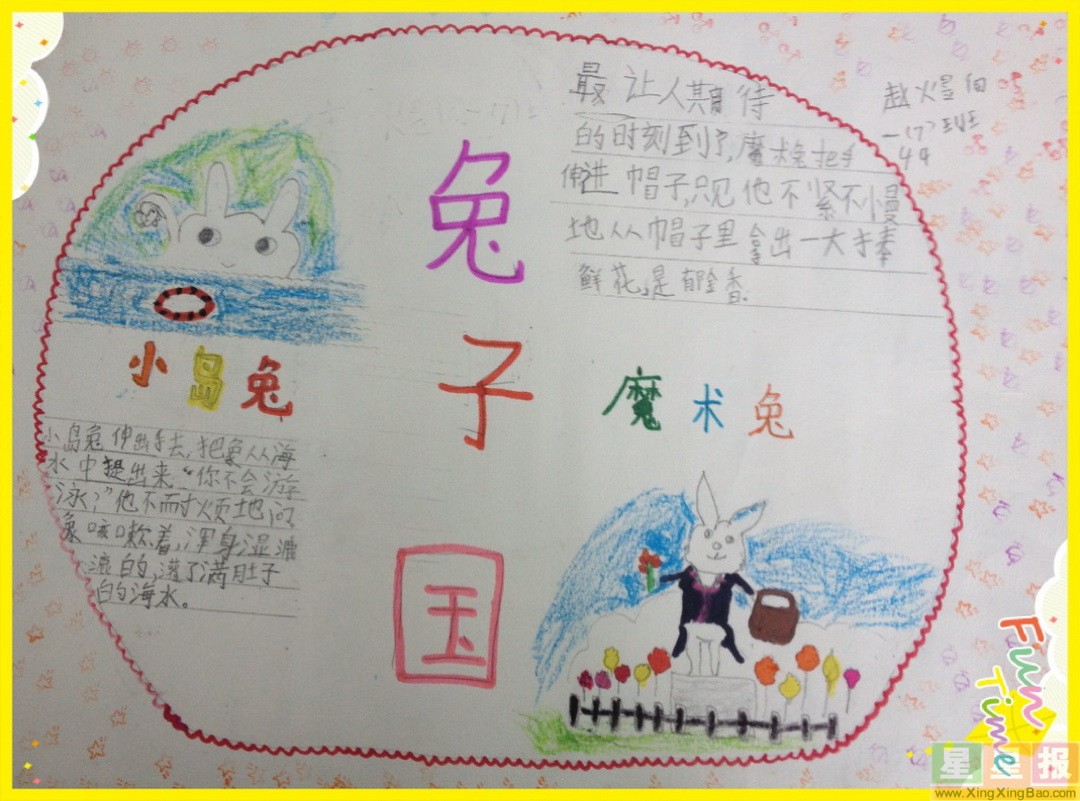 兔
子
国
最让人期待
的时刻到了,魔术兔把手
伸进帽子,只见他不紧不慢
地从帽子里拿出一大捧
鲜花,是郁金香.
一(7)班
44
小岛兔
小岛兔伸出手去,把象从海
水中提出来“你不会游
泳?”他不耐烦地问.
象咳嗽着,浑身湿漉
漉的,灌了满肚子
的海水。
魔术兔
Fun
Time
星星报
www.XingXingBao.com